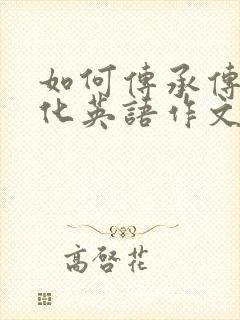 如何傳承傳
化英語作文
高啓花